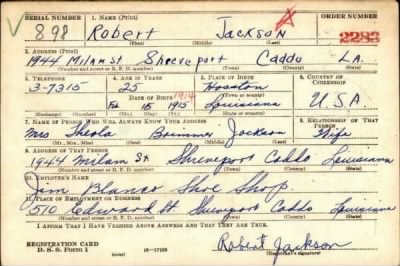 SERIAL NUMBER 1. NAME (Print) ORDER NUMBER
898 Robert Jackson 2283
(First) (Middle) (Last)
2. ADDRESS (Print)
1944 Milam St Shreveport Caddo LA.
(Number and street or R. F. D. number) (Town) (County) (State)
3. TELEPHONE 4. AGE IN YEARS 5. PLACE OF BIRTH 6. COUNTRY OF CITIZENSHIP
3-7315 25 Hosston
DATE OF BIRTH 1914 (Town or county)
Feb 15 1915 Louisiana U.S.A
(Exchange) (Number) (Mo.) (Day) (Yr.) (State or country)
7. NAME OF PERSON WHO WILL ALWAYS KNOW YOUR ADDRESS 8. RELATIONSHIP OF THAT PERSON
Mrs Jackson Wife
(Mr., Mrs., Miss) (First) (Middle) (Last)
9. ADDRESS OF THAT PERSON
1944 Milam St Shreveport Caddo Louisiana
(Number and street or R. F. D. number) (Town) (County) (State)
10. EMPLOYER'S NAME
Jim Blanco Shoe Shop
11. PLACE OF EMPLOYMENT OR BUSINESS
510 Edward St. Shreveport Caddo Louisiana
(Number and street or R. F. D. number) (Town) (County) (State)
I AFFIRM THAT I HAVE VERIFIED ABOVE ANSWERS AND THAT THEY ARE TRUE.
REGISTRATION CARD
D. S. S. Form 1 16-17105 Robert Jackson
(Registrant's signature)